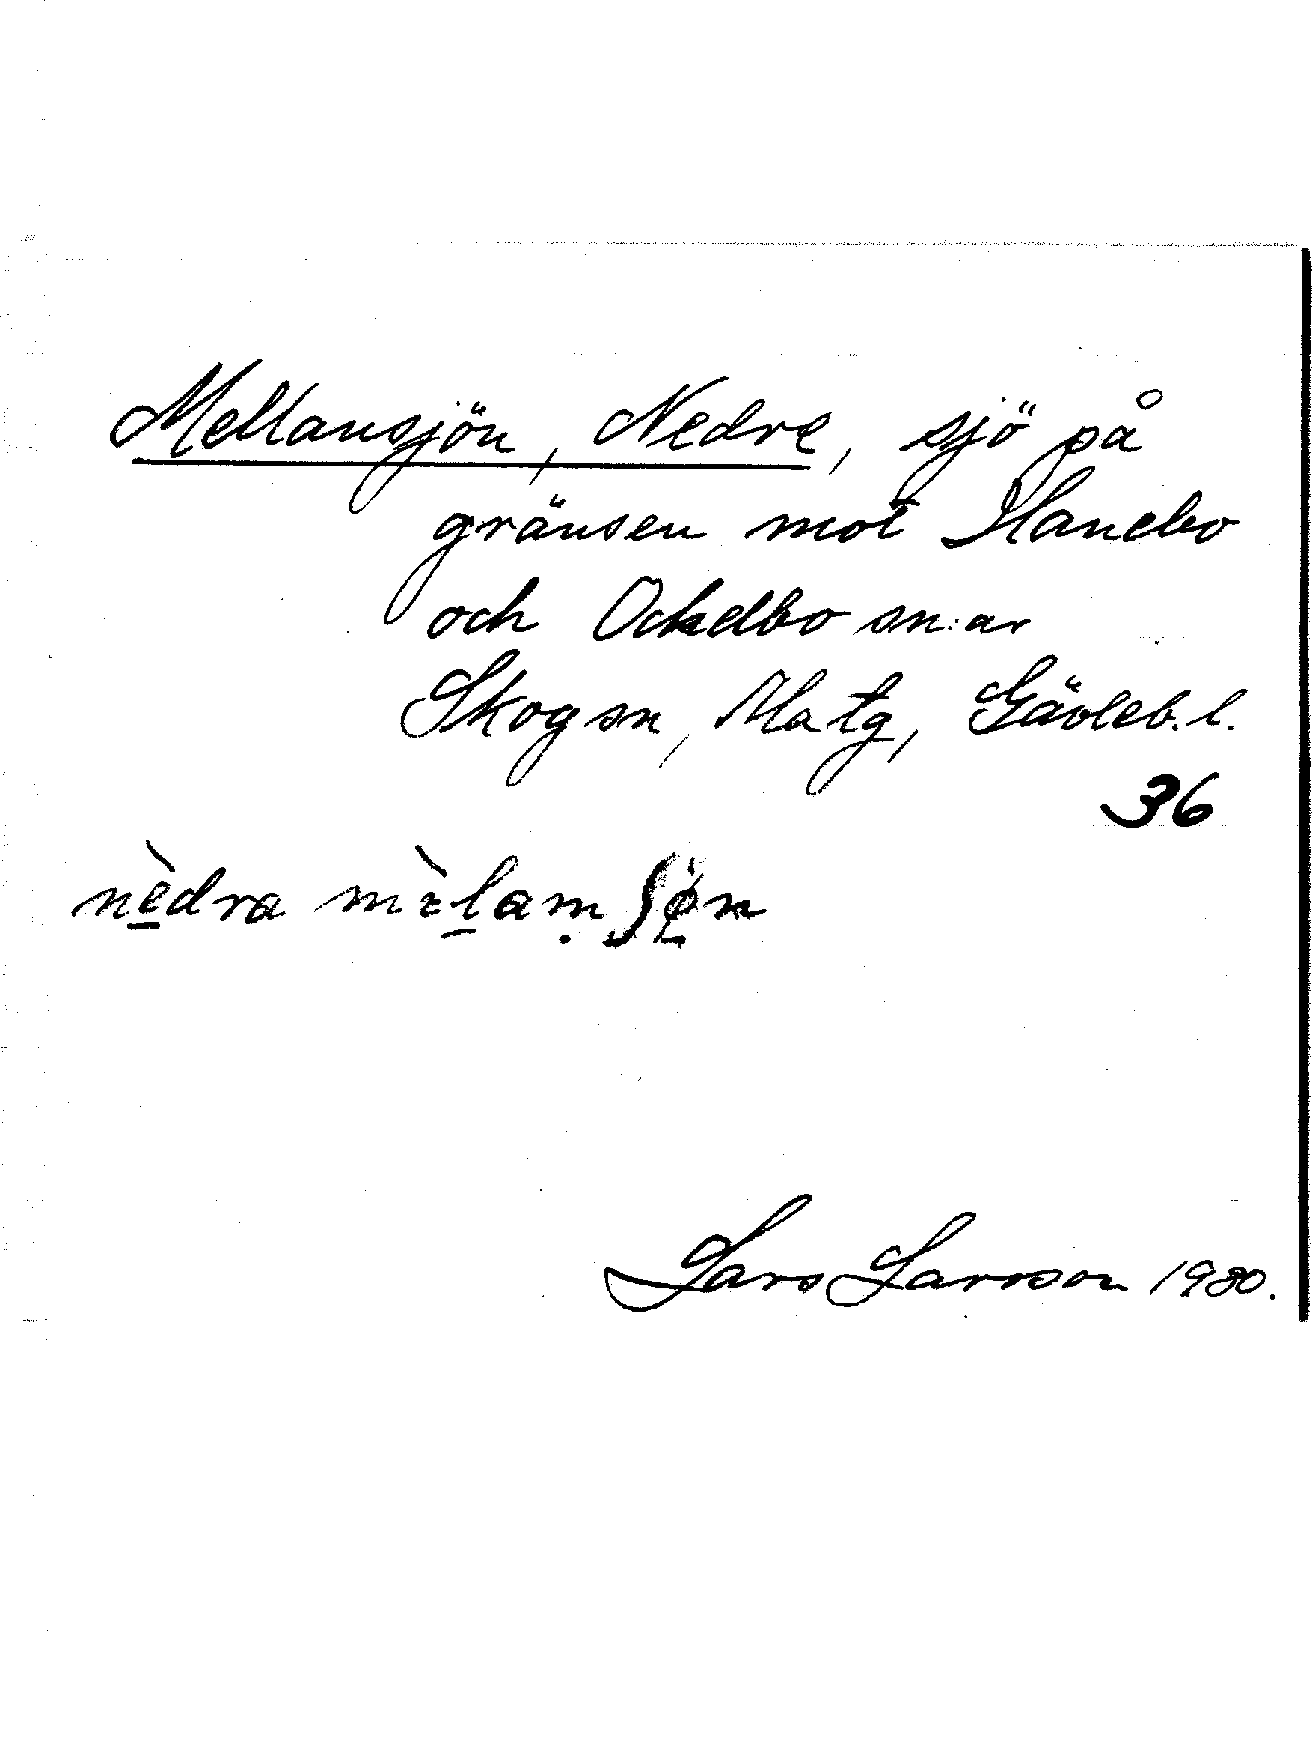 Mellansjön, Nedre, sjö på
gränsen mot Hanebo
och Ockelbo sn:ar
Skog sn, Ala tg, Gävleb. l.
36
nèdra mὲlam ʃøn
Lars Larsson 1980.